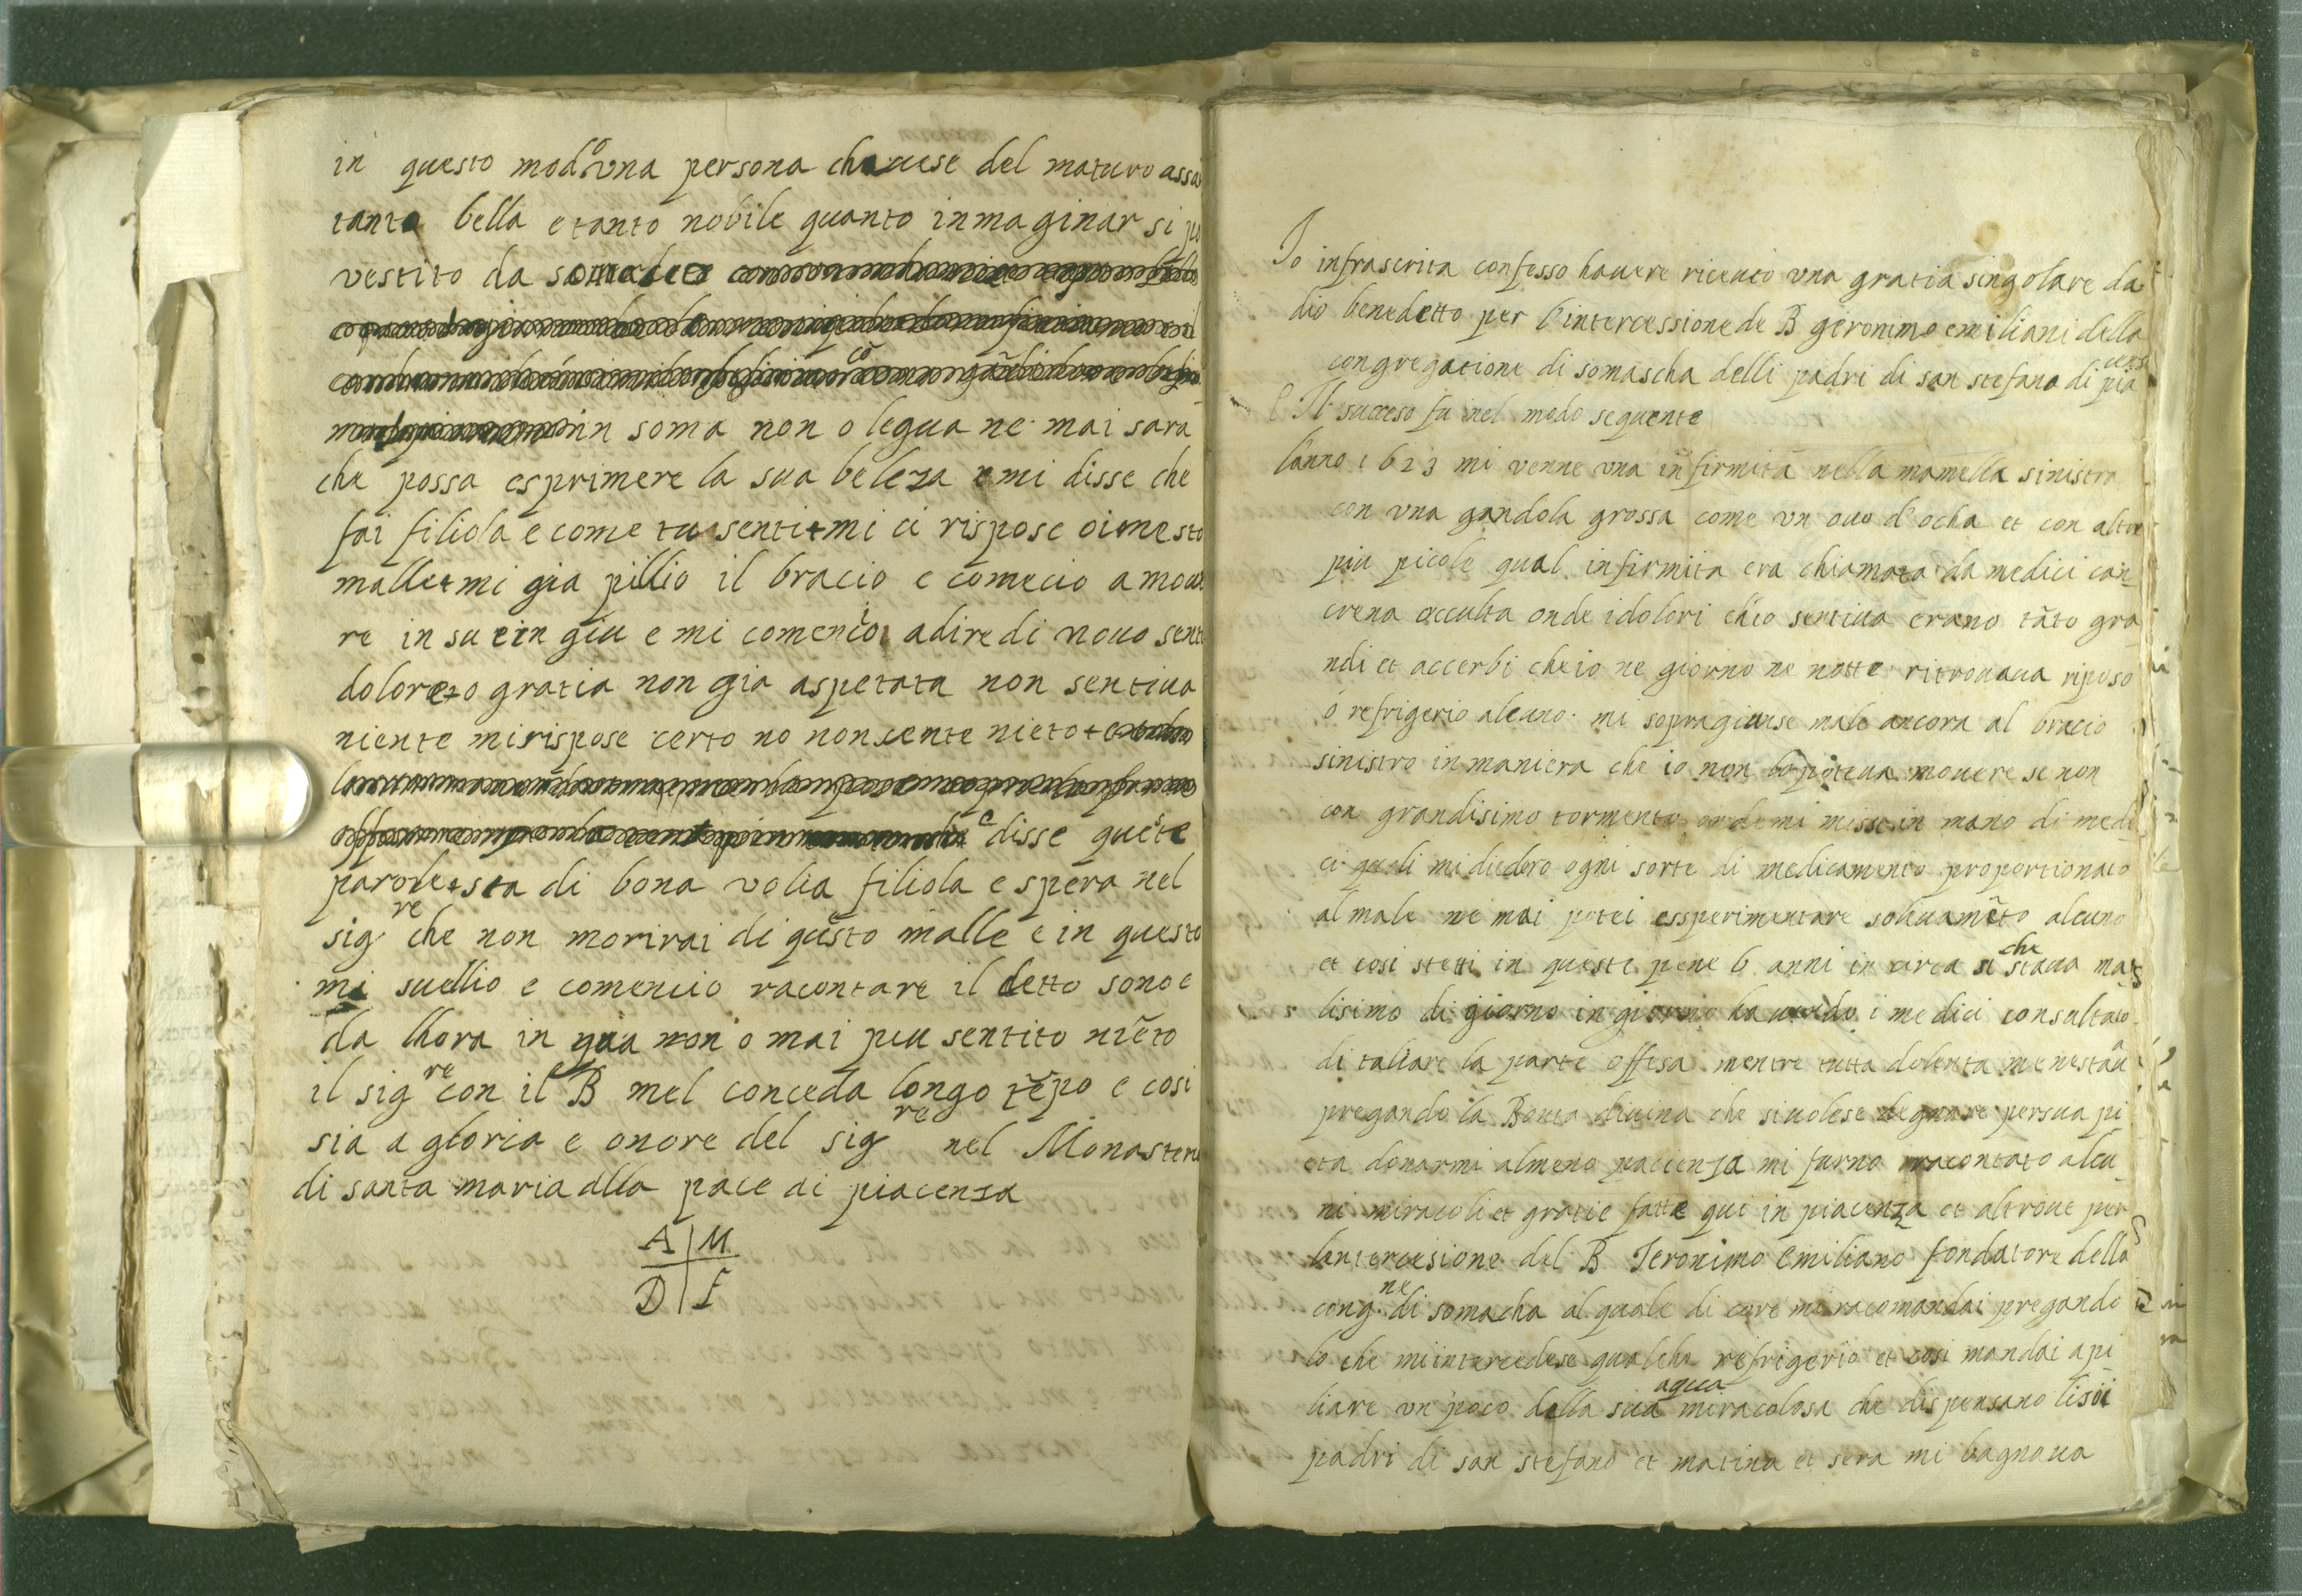 in questo modo una persona chauese del maturo assa
tanto bella e tanto nobile quanto inmaginar si
vestito da
in soma non o legua ne mai sara
che possa esprimere la sua beleza e mi disse che
fai filiola e come tu senti + mi ci rispose oime sto
malle + mi gia pillio il bracio e comecio a moue
re in su e in giu e mi comencio a dire di nouo sent
dolore + o gratia non gia aspetata non sentiua
niente mi rispose certo no non sente nieto +
e disse quete
parole + sta di bona volia filiola e spera nel
sig re che non morirai di qusto malle e in questo
mi suellio e comencio racontare il detto sono e
da lhora in qua non o mai piu sentito nieto
il sig re con il B mel conceda longo tepo e cosi
sia a gloria e onore del sig re nel Monastero
di santa maria della pace di piacenza
A M
D F
Io infrascrita confesso hauere riceuto una gratia singolare da
dio benedetto per l'intercessione de B geronimo emiliani della
congregatione di somascha delli padri di san stefano di piacenza
Il succeso fu nel modo sequente
l'anno 1623 mi venne una infirmita nella mamella sinistra
con una gandola grossa come un ouo d'ocha et con altre
piu picole qual infirmita era chiamata da medici can
crena occulta onde i dolori ch'io sentiua erano tãto gra
ndi et accerbi che io ne giorno ne notte ritrouaua riposo
ó refrigerio alcuno mi sopragiunse male ancora al bracio
sinistro in maniera che io non poteua mouere se non
con grandisimo tormento onde mi misse in mano di medi
ci quali mi diedero ogni sorte di medicamento proportionato
al male ne mai potei essperimentare soleuamẽto alcuno
et cosi stetti in queste pene 6 anni in circa si che staua ma
lisimo di giorno in giorno hauendo i medici consultato
di taliare la parte offesa mentre tutta dolenta me nestau
pregando la Bonta diuina che si uolese degnare per sua pi
eta donarmi almeno pacienza mi furno racontato alcu
ni miracoli et gratie fatte qui in piacenza et altroue per
lintercesione del B Ieronimo emiliano fondatore della
cong. ne di somacha al quale di core mi racomandai pregando
lo che mi intercedese qualche refrigerio et cosi mandai a pi
liare un poco della sua aqua miracolosa che dispensano li soi
padri di san stefano et matina et sera mi bagnaua